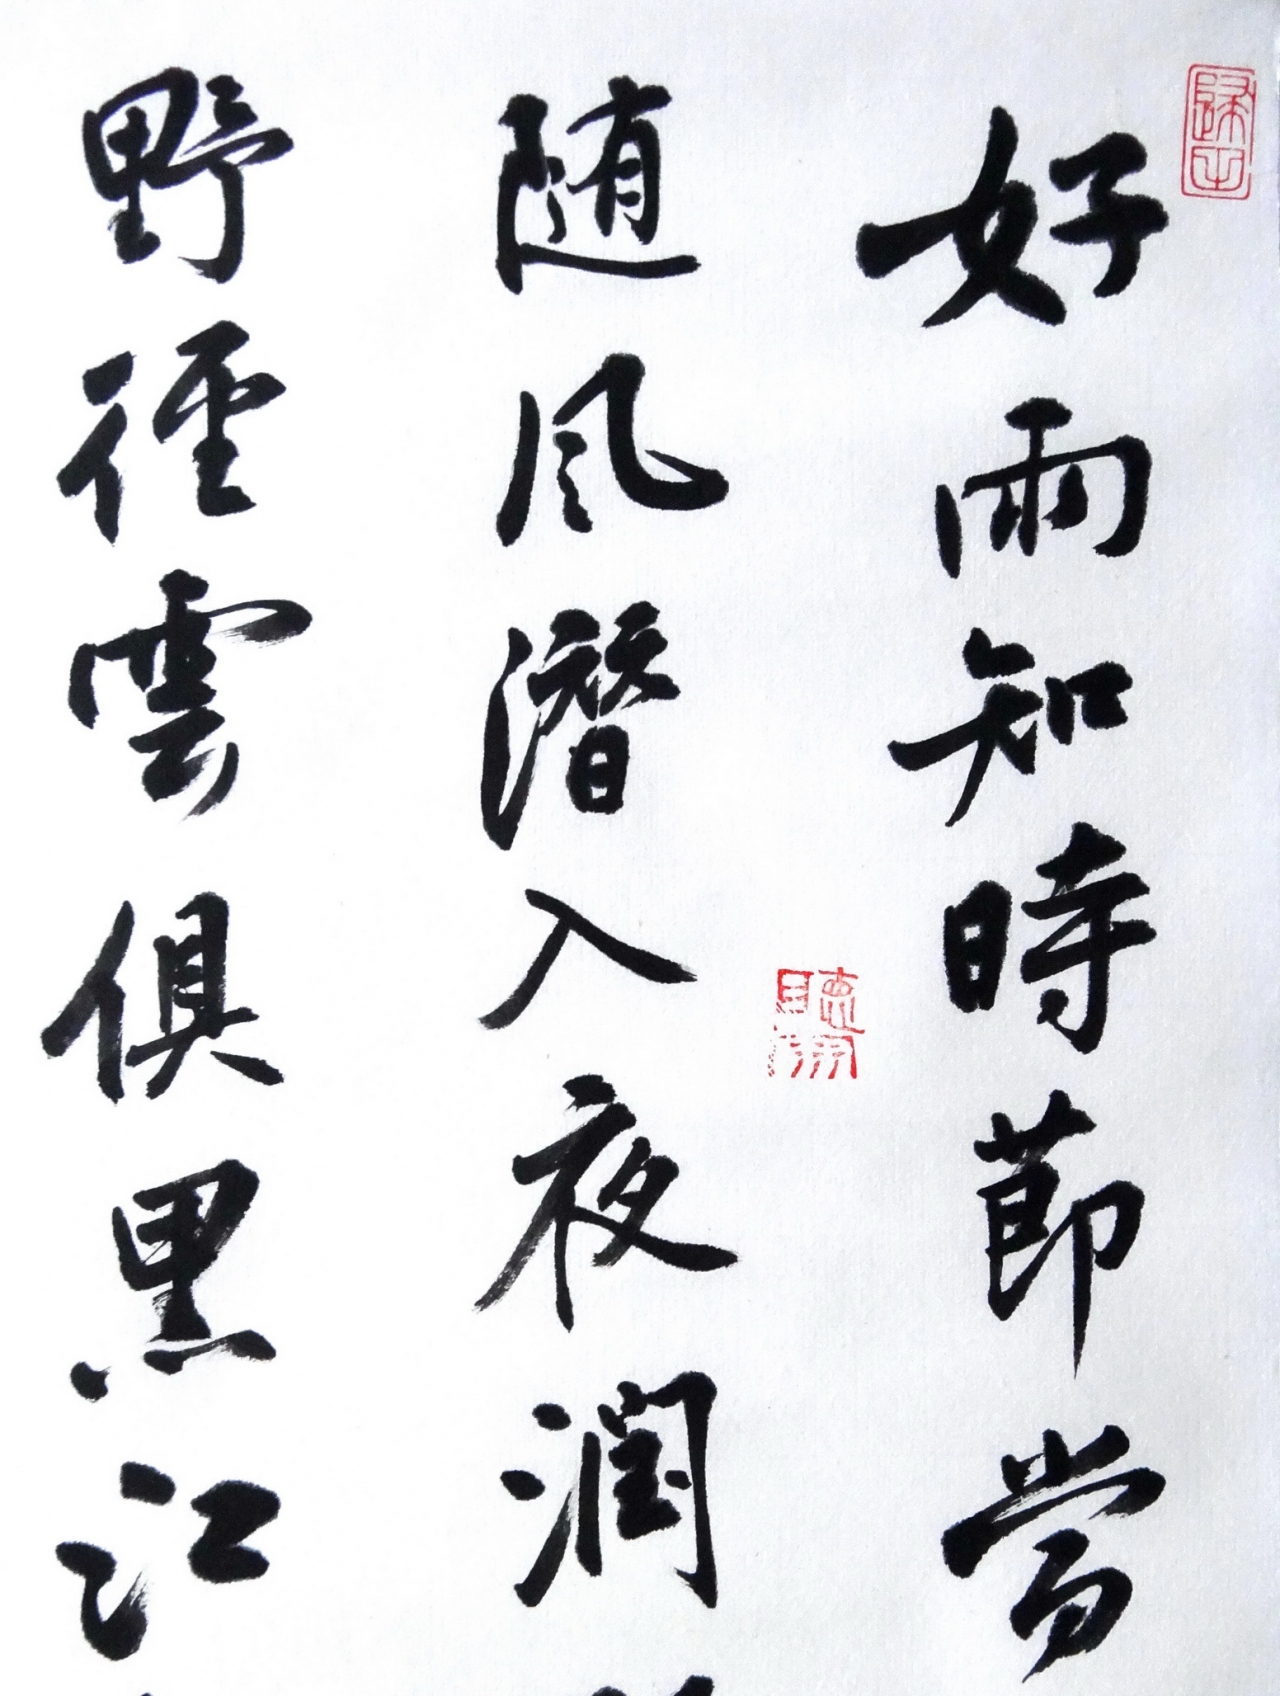 好雨知時節當
随風潛入夜潤
野徑雲俱黑江